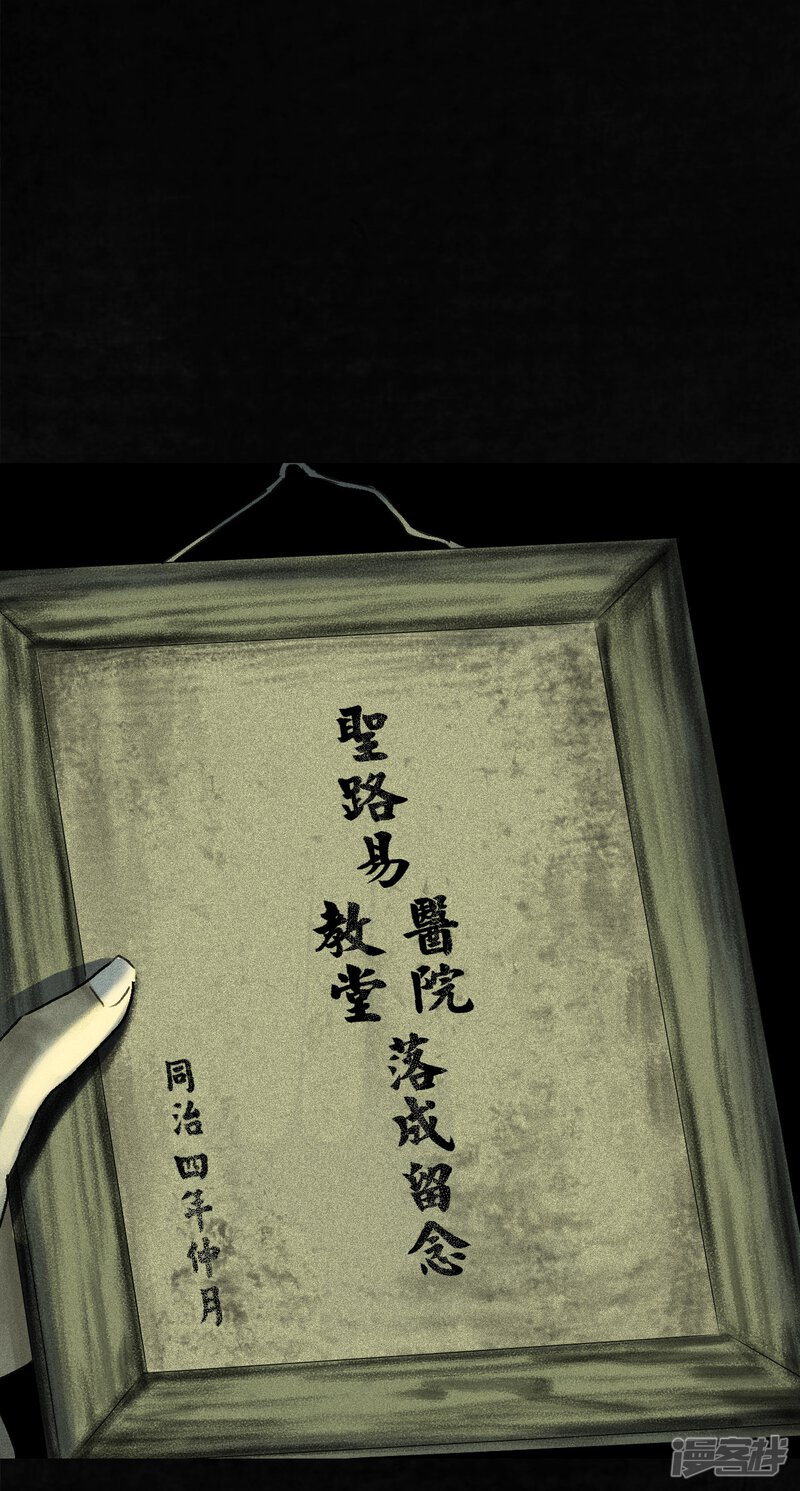 聖路易
醫院
教堂
落成留念
同治四年仲月
漫客栈